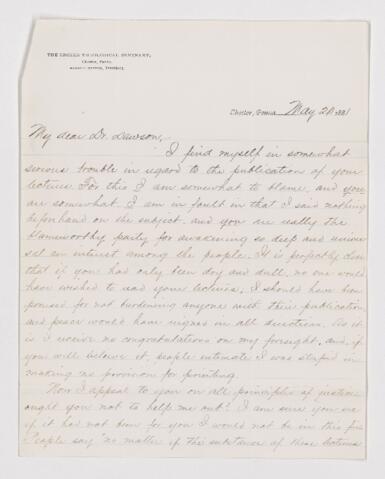 THE CROZER THEOLOGICAL SEMINARY,
Chester, Penna.
Chester, Penna. May 20 1881
My dear Dr. Dawson,
I find myself in somewhat
serious trouble in regard to the publication of your
lectures For this I am somewhat to blame, and you
are somewhat. I am in fault in that I said nothing
beforehand on the subject, and you are really the
blameworthy party for awakening so deep and univer
sal an interest among the people. It is perfectly clear
that if you had only been dry and dull, no one would
have wished to read your lectures, I should have been
praised for not burdening anyone with their publication
and peace would have reigned in all directions. As it
is I receive no congratulations on my foresight, and, if
you will believe it, people intimate I was stupid in
making no provision for printing.
Now I appeal to you on all principles of justice
ought you not to help me out? I am sure you see
if it had not been for you I would not be in this fix
People say "no matter if the substance of these lectures